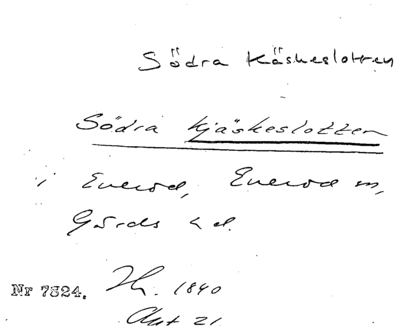 Södra Käskeslotten
Södra kjäskeslotten
i Everöd, Everöd sn,
Gärds hd.
Nr 7824. Th. 1840
Akt 21